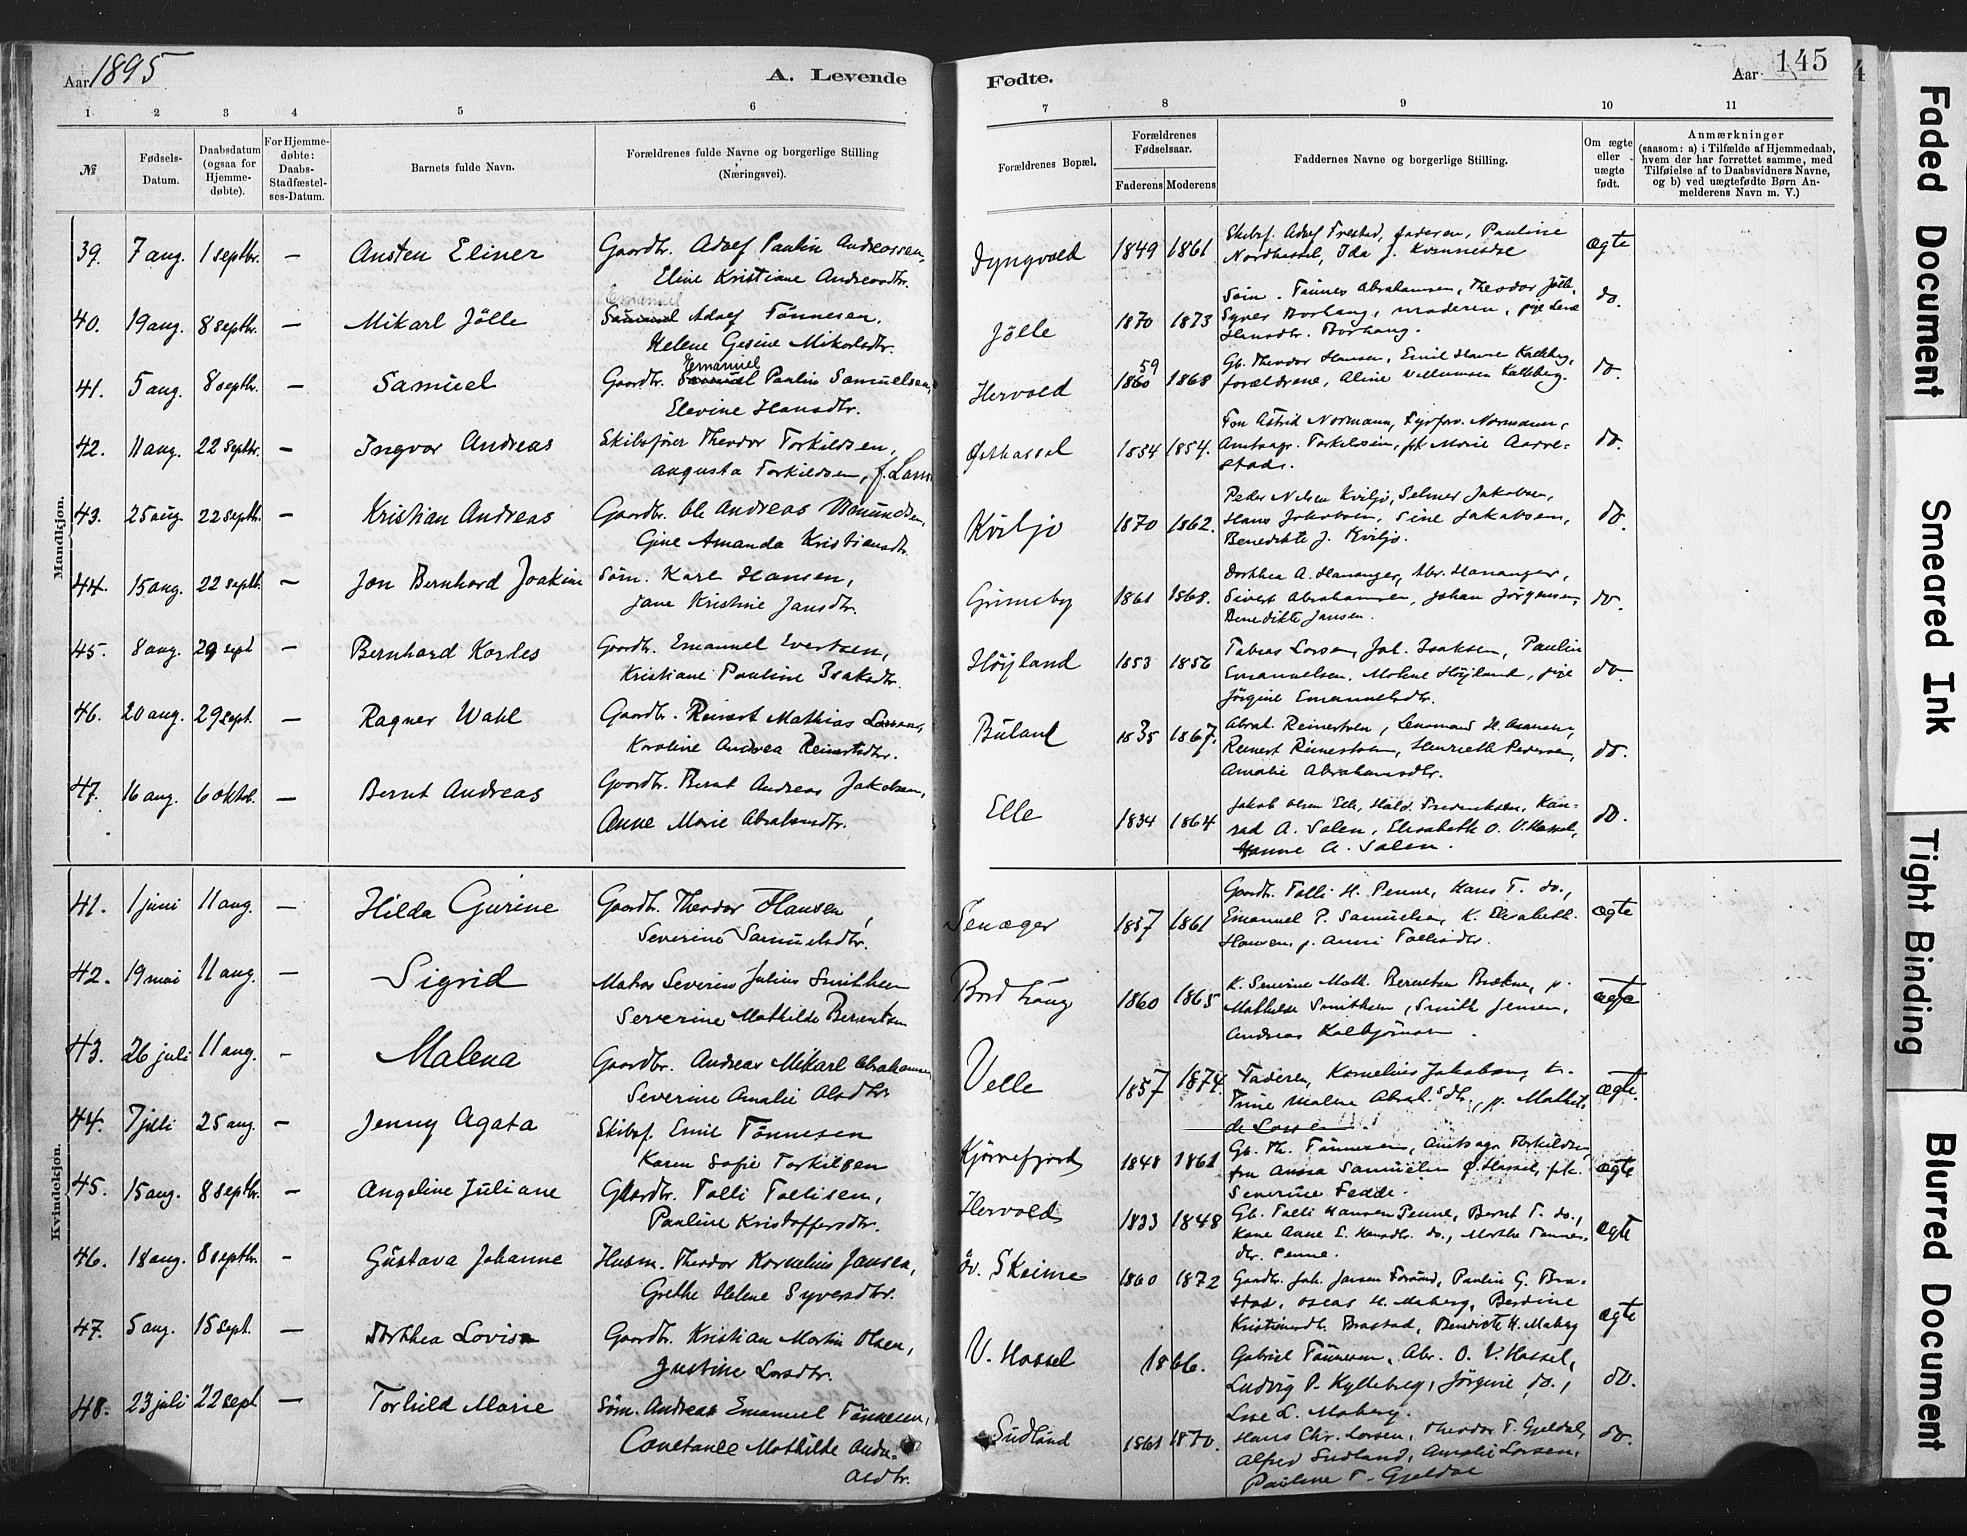 Aar 1895
A. Levende
1 2 3 4 5 6
№
Fødsels-
Datum.
Daabsdatum
(ogsaa for
Hjemme-
døbte).
For Hjemme-
døbte:
Daabs-
Stadfæstel-
ses-Datum.
Barnets fulde Navn.
Forældrenes fulde Navne og borgerlige Stilling
(Næringsvei).
Mandkjøn.
39. 7 aug. 1 septbr. — Austen Eliner Gaardbr. Adolf Paulin Andreassen,
Eline Kristiane Andreasdtr.
Emanuel
40. 19 aug. 8 septbr. — Mikarl Jölle Samuel Adolf Tönnesen.
Helene Gesine Mikarlsdtr.
Emanuel
41. 5 aug. 8 septbr. — Samuel Gaardbr. Samuel Paulin Samuelsen,
Elevine Hansdtr.
42. 11 aug. 22 septbr. — Ingvar Andreas Skibsfører Theodor Torkildsen,
Augusta Torkildsen, f.
43. 25 aug. 22 septbr. — Kristian Andreas Gaardbr. Ole Andreas
Gine Amanda Kristiansdtr.
44. 15 aug. 22 septbr. — Jon Bernhard Joakim Søm. Karl Hansen,
Jane Kristine Jansdtr.
45. 8 aug. 29 sept — Bernhard Karles Gaardbr. Emanuel Evertsen,
Kristiane Pauline Isaksdtr.
46. 20 aug. 29 sept. — Ragner Wahl Gaardbr. Reinert Mathias Larsen,
Karoline Andrea Reinertsdtr.
47. 16 aug. 6 oktbr. — Bernt Andreas Gaardbr. Bernt Andreas Jakobsen,
Anne Marie Abrahamsdtr.
Kvindekjøn.
41. 1 juni 11 aug. — Hilda Gurine Gaardbr. Theodor Hansen,
Severine Samuelsdtr.
42. 19 mai 11 aug. — Sigrid Matros Severin Julius Smithsen
Severine Mathilde Berentsen
43. 26 juli 11 aug. — Malena Gaardbr. Andreas Mikarl Abrahamsen
Severine Amalie Olsdtr.
44. 7 juli 25 aug. — Jenny Agata Skibsf. Emil Tönnesen
Karen Sofie Torkilsen
45. 15 aug. 8 septbr. — Angeline Juliane Gaardbr. Tolli Tollisen,
Pauline Kristoffersdtr.
46. 18 aug. 8 septbr. — Gustava Johanne Husm. Theodor Kornelius Jansen,
Grethe Helene Syversdtr.
47. 5 aug. 15 sept. — Dorthea Lovise Gaardbr. Kristian Martin Olsen,
Justine Larsdtr.
48. 23 juli 22 sept — Torhild Marie Søm. Andreas Emanuel Tönnesen,
Constance Mathilde Andre-
asdtr.
Fødte.
Aar 145
7 8 9 10 11
Forældrenes Bopæl.
Forældrenes
Fødselsaar.
Faderens Moderens
Faddernes Navne og borgerlige Stilling.
Om ægte
eller
uægte
født.
Anmærkninger
(saasom: a) i Tilfælde af Hjemmedaab,
hvem der har forrettet samme, med
Tilføielse af to Daabsvidners Navne,
og b) ved uægtefødte Børn An-
melderens Navn m. V.)
Dyngvold 1849 1861 Skibsf. Adolf Frestad, faderen, Pauline
Nordhassel, Ida J. ægte
Jölle 1870 1873 Søm. Tönnes Abrahamsen, Theodor Jölle,
Syver Borhaug, moderen, pige Lene
Hansdtr. Borhaug. do.
59
Hervold 1860 1868 Gb. Theodor Hansen, Emil Hansen Kalleberg,
forældrene, Aline Villumsen Kalleberg. do.
Østhassel 1854. Fru Astrid Normann, Normann,
Torkelsen, frk Marie Aarre-
stad. do.
Kviljo 1870 1862. Peder Nilsen Kviljo, Selmer Jakobsen,
Hans Jakobsen, Sine Jakobsen,
Benedikte J. Kviljo. do.
Grimsby 1861 1868. Dorthea A. Hananger, Abr. Hananger,
Sivert Abrahamsen, Johan Jörgensen,
Benedikte Jansen. do.
Höjland 1853 1856 Tobias Larsen, Joh. Isaksen, Paulin
Emanuelsen, Malene Höjland, pige
Jörgine Emanuelsdtr. do
Büland 1835 1867. Abrah. Reinertsen, H. Aanensen,
Reinert Reinertsen, Henriette Pedersen,
Amalie Abrahamsdtr. do.
Elle 1834 1864 Jakob Olsen Elle, Hald. Fredriksen, Kon-
rad A. Salen, Elisabeth O. V. Hassel,
Hanne A. Salen. do.
Senæger 1857 1861 Gaardbr. Tolli H. Penne, Hans T. do.,
Emanuel P. Samuelsen, K. Elisabeth
Hansen, p. Anne Tollisdtr. ægte
Borhaug 1860 1865 K. Severine Math. Berentsen Brekne, p.
Mathilde Smithsen, Smith Jensen,
Andreas ægte
Velle 1857 1874. Faderen, Kornelius Jakobsen, k.
Trine Malene Abrah.sdtr., p. Mathil-
de Larsen ægte.
Kjörrefjord 1848 1861 Gb. Th. Tönnesen, Amtsagr Torkildsen,
fru Anna Samuelsen Ø. Hassel, frk.
Severine Fedde. ægte
Hervold 1833 1848 Gb. Tolli Hansen Penne, Bernt T. do.,
Kone Anne L. Hansdtr. do., Marthe Tönnes-
dtr. Penne. ægte
öv. Skeime 1860 1872 Gaardbr. Joh. Jansen, Paulin G. Bra-
stad, Oscar H. Maberg, Berdine
Kristiansdtr. Brastad, Benedicte H. Maberg ægte
V. Hassel 1866. Gabriel Tönnesen, Abr. O. V. Hassel,
Ludvig P. Kylleberg, Jörgine do.,
Lise L. Maberg. do.
Sudland 1861 1870. Hans Chr. Larsen, Theodor T. Gjeldal,
Alfred Sudland, Amalie Larsen,
Pauline T. Gjeldal do.
Faded Document
Smeared Ink
Tight Binding
Blurred Document